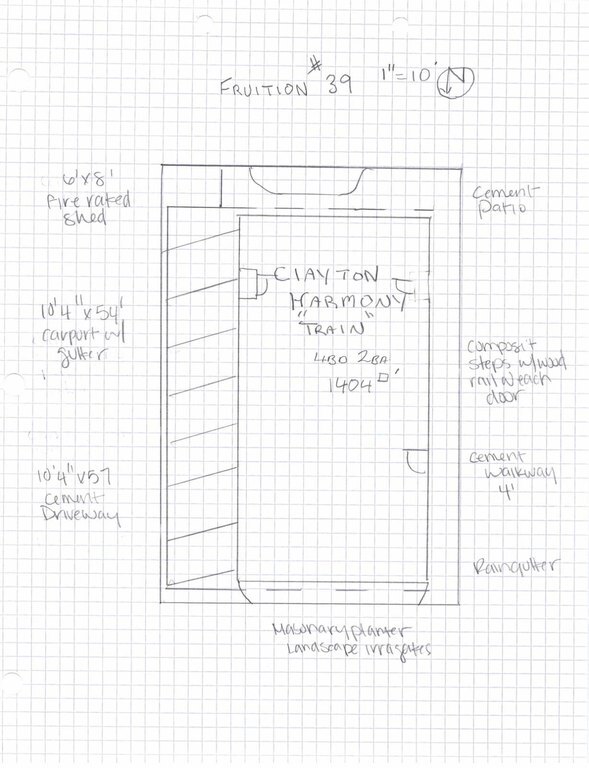 FRUITION #39 1"=10' N
6'x8'
fire rated
shed
Cement
Patio
CLAYTON
HARMONY
"TRAIN"
4BD 2BA
1404□'
10'4"x54'
carport w/
gutter
composit
steps w/wood
rail @ each
door
10'4"x57
cement
Driveway
cement
walkway
4'
Raingutter
Masonary planter
Landscape irragates